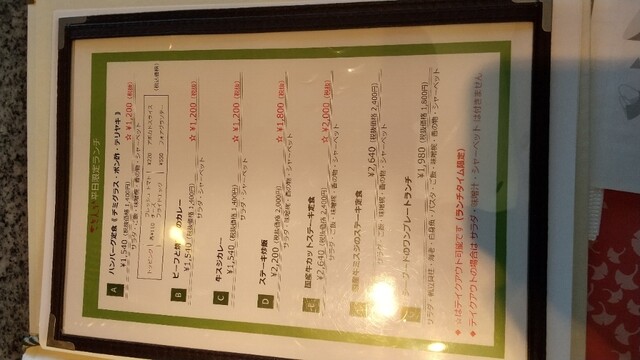 平日限定ランチ
A ハンバーグ定食《デミグラス・ポン酢・テリヤキ》
¥1,540 (税抜価格 1,400円) ☆ ¥1,200 (税抜)
サラダ・ご飯・味噌椀・香の物・シャーベット
トッピング フレッシュトマト ¥220 アボカドスライス
フライドエッグ フォアグラソテー
B ビーフと カレー
¥1,540 (税抜価格 1,400円) ☆ ¥1,200 (税抜)
サラダ・シャーベット
C 牛スジカレー
¥1,540 (税抜価格 1,400円) ☆ ¥1,200 (税抜)
サラダ・シャーベット
D ステーキ炒飯
¥2,200 (税抜価格 2,000円) ☆ ¥1,800 (税抜)
サラダ・味噌椀・香の物・シャーベット
E 国産牛カットステーキ定食
¥2,640 (税抜価格 2,400円) ☆ ¥2,000 (税抜)
サラダ・ご飯・味噌椀・香の物・シャーベット
国産牛ミスジのステーキ定食
¥2,640 (税抜価格 2,400円)
サラダ・ご飯・味噌椀・香の物・シャーベット
シーフードのワンプレートランチ
¥1,980 (税抜価格 1,800円)
サラダ・帆立貝柱・海老・白身魚・パスタ・ご飯・味噌椀・香の物・シャーベット
◆ ☆はテイクアウト可能です《ランチタイム限定》
◆ テイクアウトの場合は サラダ・味噌汁・シャーベット は付きません